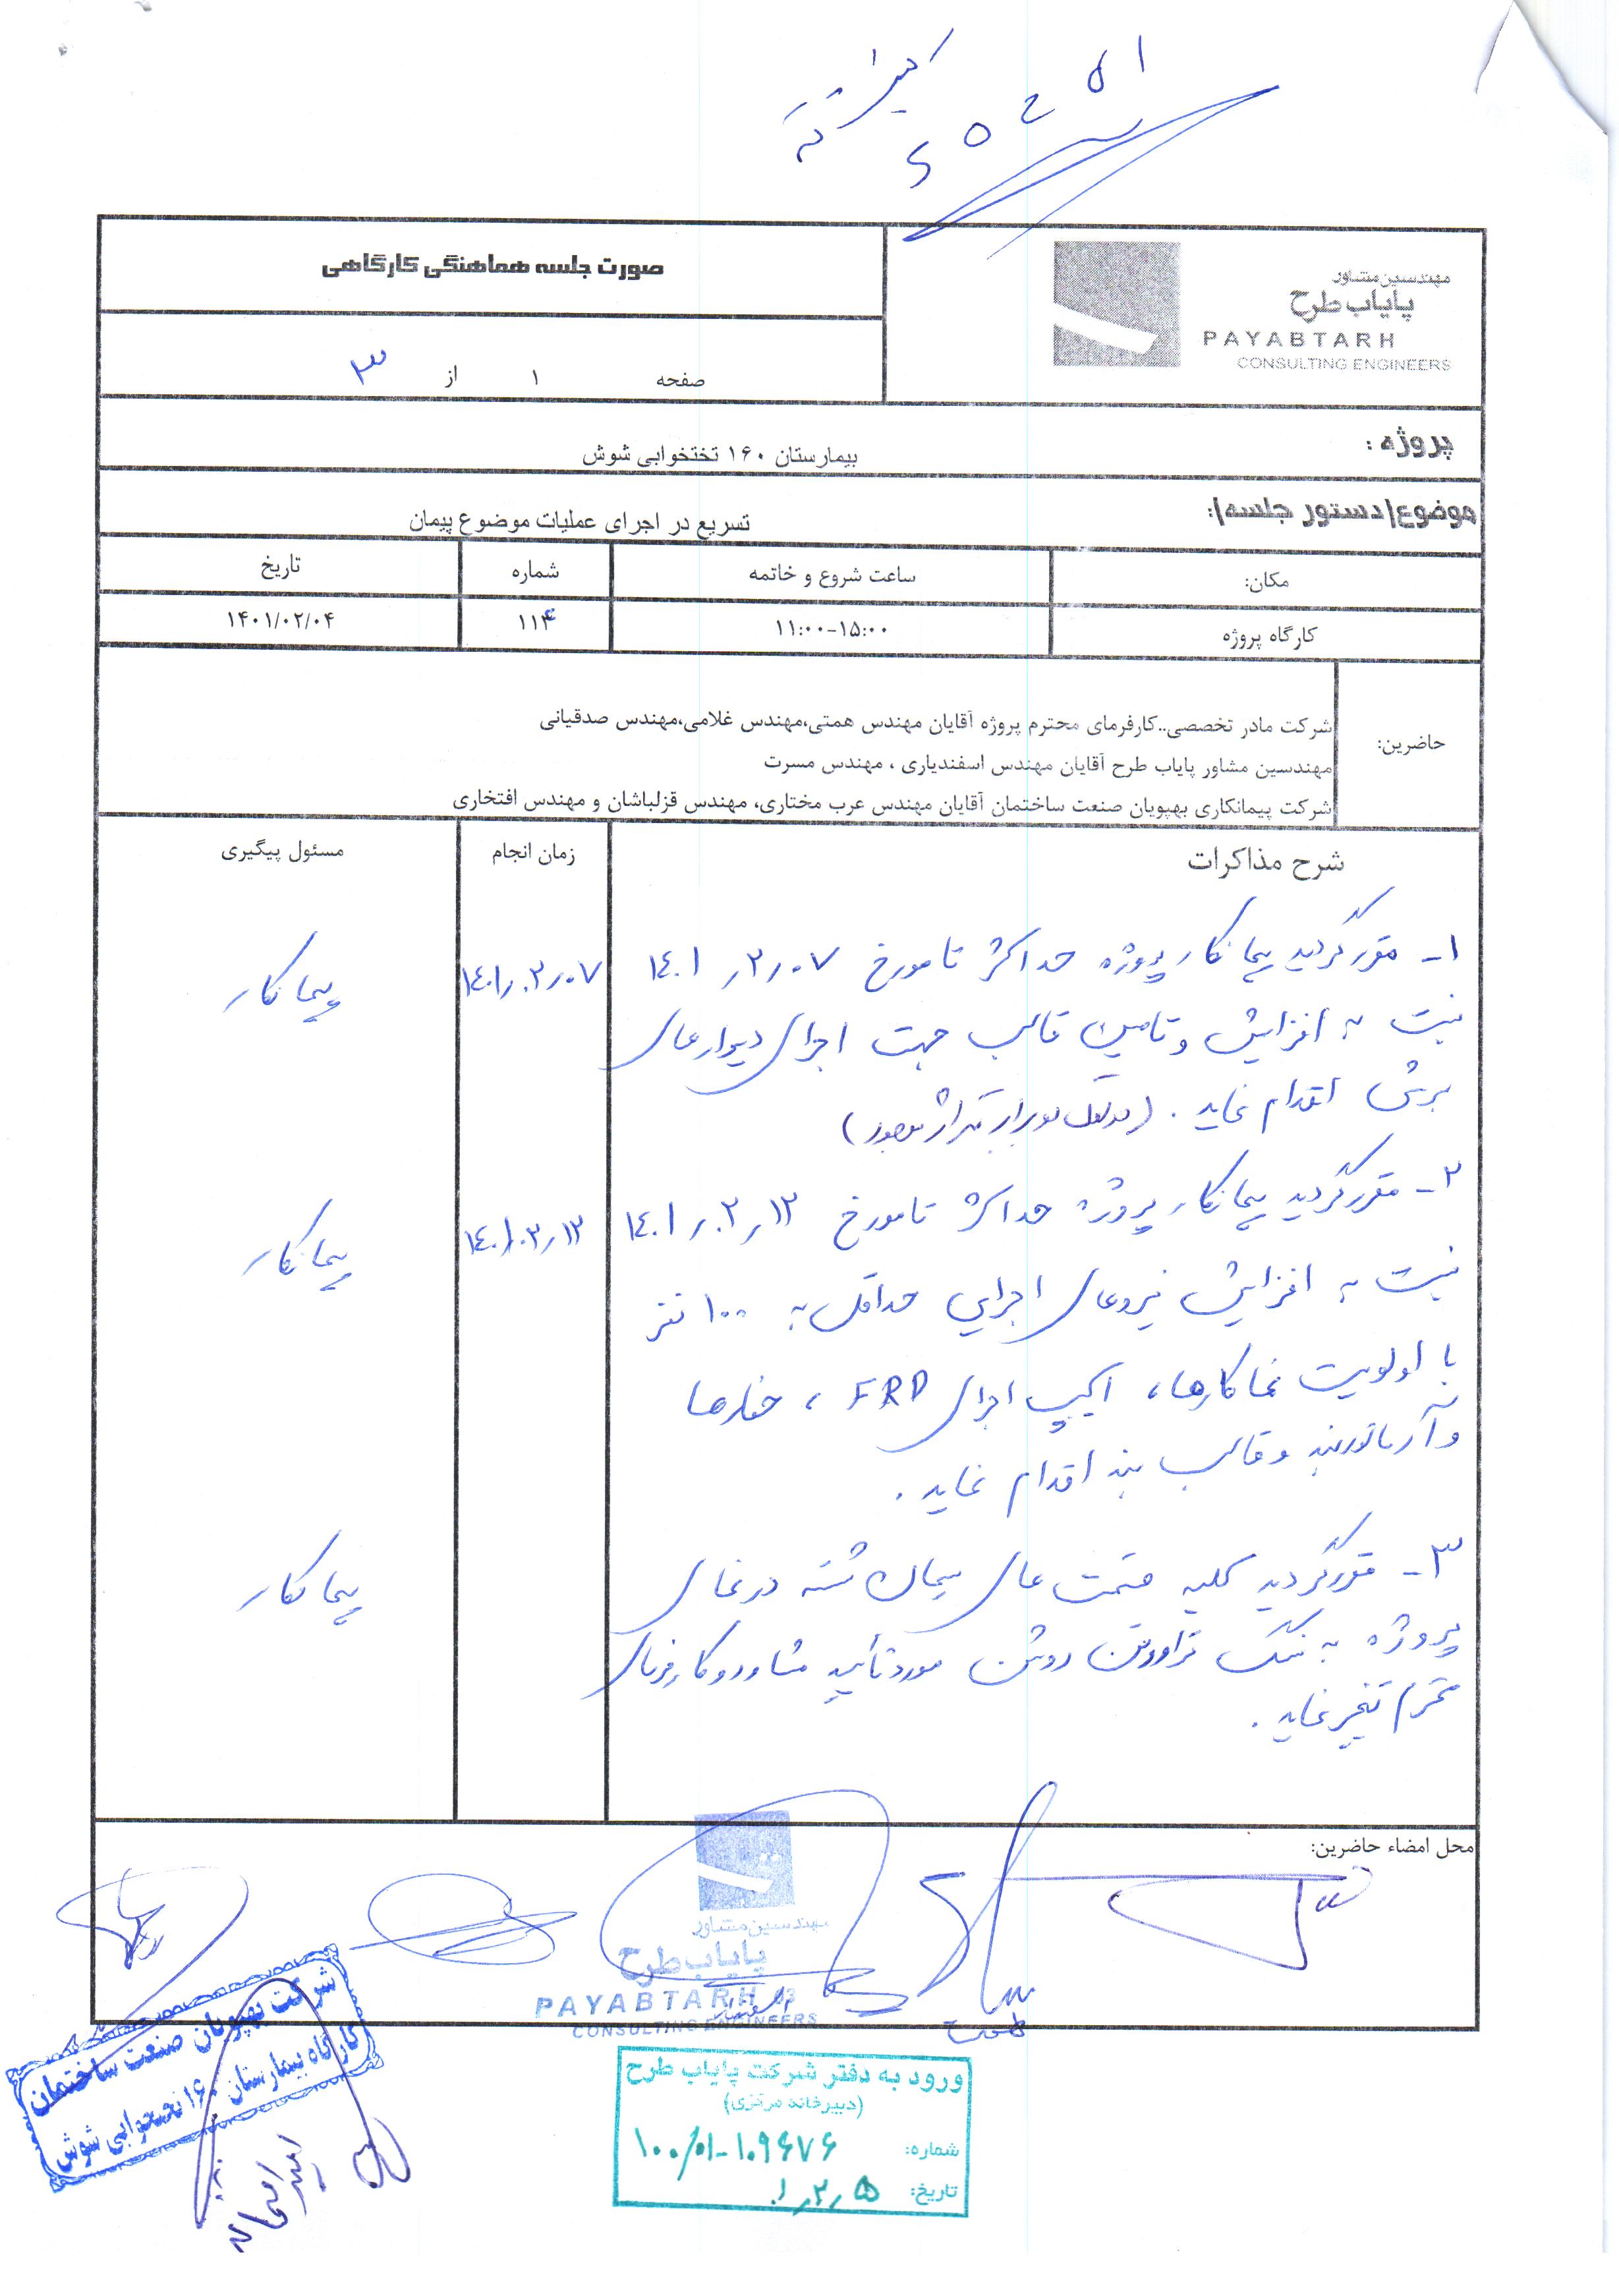 صورت جلسه هماهنگی کارگاهی
مهندسین مشاور
پایاب طرح
PAYABTARH
CONSULTING ENGINEERS
صفحه ۱ از ۳
پروژه :
بیمارستان ۱۶۰ تختخوابی شوش
موضوع/دستور جلسه/:
تسریع در اجرای عملیات موضوع پیمان
مکان: ساعت شروع و خاتمه شماره تاریخ
کارگاه پروژه ۱۱:۰۰-۱۵:۰۰ ۱۱۴ ۱۴۰۱/۰۲/۰۴
حاضرین:
شرکت مادر تخصصی..کارفرمای محترم پروژه آقایان مهندس همتی،مهندس غلامی،مهندس صدقیانی
مهندسین مشاور پایاب طرح آقایان مهندس اسفندیاری ، مهندس مسرت
شرکت پیمانکاری بهپویان صنعت ساختمان آقایان مهندس عرب مختاری، مهندس قزلباشان و مهندس افتخاری
شرح مذاکرات زمان انجام مسئول پیگیری
۱- مقرر گردید پیمانکار پروژه حداکثر تا مورخ
نسبت به افزایش و تامین قالب جهت اجرای دیوارهای
برشی اقدام نماید.
پیمانکار
۲- مقرر گردید پیمانکار پروژه حداکثر تا مورخ
نسبت به افزایش نیروهای اجرایی حداقل به ۱۰۰ نفر
با اولویت نماکارها، اکیپ اجرای FRP ، حفارها
و آرماتوربند و قالب بند اقدام نماید.
پیمانکار
۳- مقرر گردید کلیه قسمت های سیمان شسته در نمای
پروژه به سنگ تراورتن روشن مورد تأیید مشاور و کارفرمای
محترم تغییر نماید.
پیمانکار
محل امضاء حاضرین:
مهندسین مشاور
پایاب طرح
PAYABTARH 03
CONSULTING ENGINEERS
شرکت بهپویان صنعت ساختمان
کارگاه بیمارستان ۱۶۰ تختخوابی شوش
ورود به دفتر شرکت پایاب طرح
(دبیرخانه مرکزی)
شماره: ۱۰۰/۰۱-۱۰۹۶۷۶
تاریخ: ۰۱,۲,۵